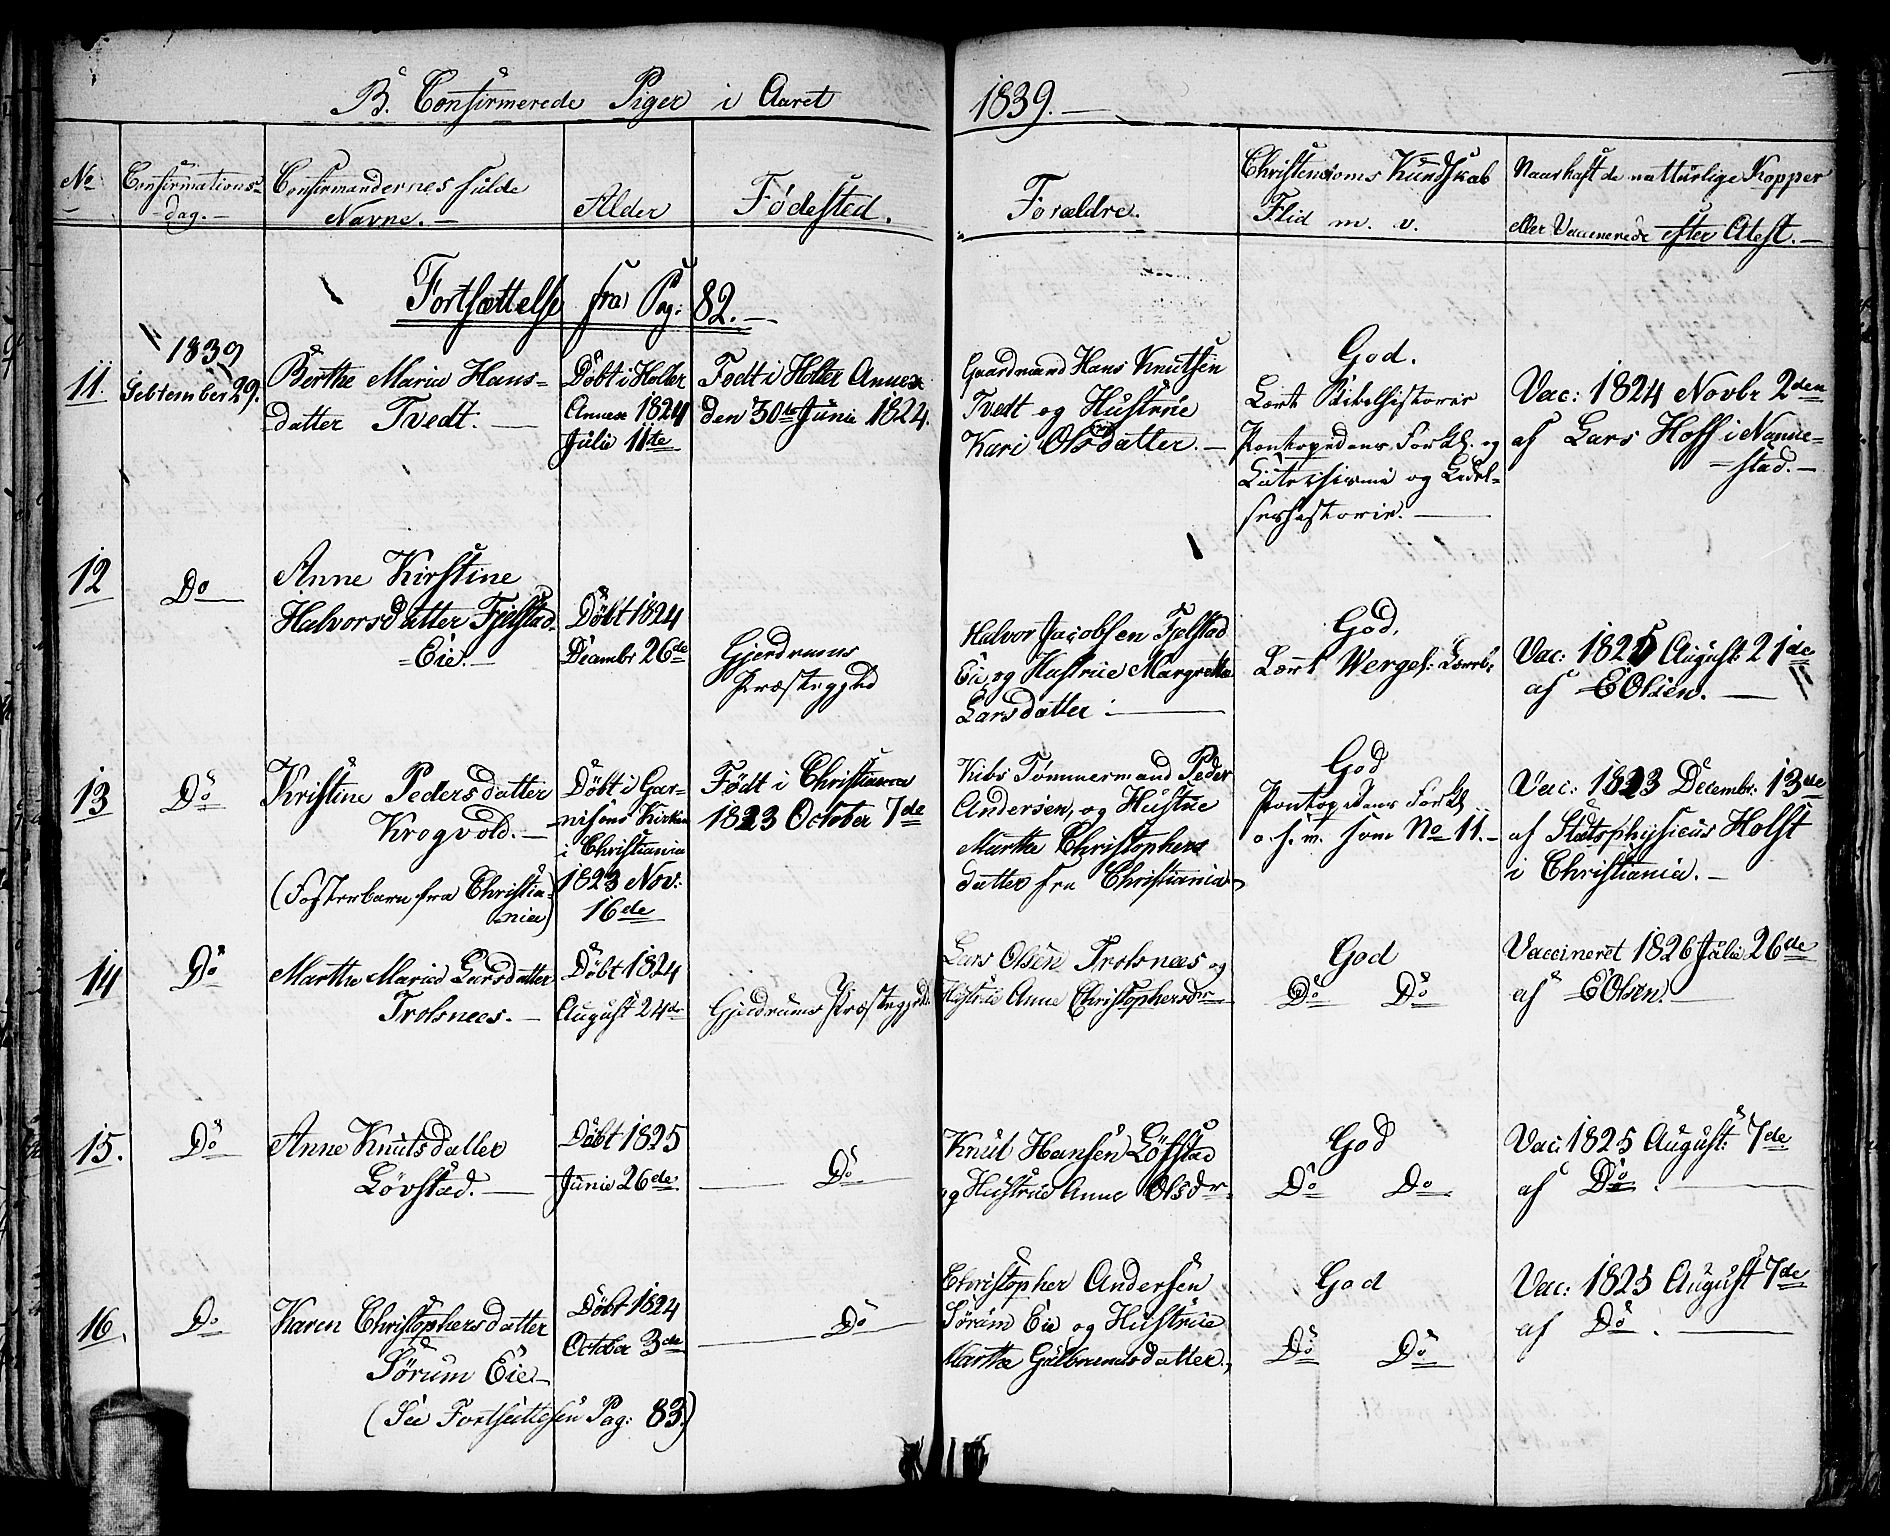 B. Confirmerede Piger i Aaret 1839.
No
Confirmations-
dag.
Confirmandernes fulde
Navne.
Alder
Fødested.
Forældre.
Christendoms Kundskab
Flid m. v.
Naar havt de natturlige Kopper
eller Vaccenerede efter Atest.
Fortsættelse fra Pag: 82.
11.
1839
Sebtember 29.
Berthe Maria Hans-
datter Tvedt.
Døbt i Holter
Annex 1824
Julii 11te
Født i Holter Annex
den 30te Junie 1824.
Gaardmand Hans Knutsen
Tvedt og Hustrue
Kari Olsdatter.
God.
Lært Bibelhistorie
Pontopedans Forkl. og
og Lidel-
seshistorie.
Vac: 1824 Novbr 2den
af Lars Hoff i Nanne-
stad.
12
Do
Anne Kirstine
Halvorsdatter Fjelstad
Eie.
Døbt 1824
Decembr 26de
Gjerdrums
Præstegjeld
Halvor Jacobsen Fjelstad
Eie og Hustrue Margrethe
Larsdatter
God.
Lært Wergel: Læreb.
Vac: 1825 August 21de
af E Olsen.
13
Do
Kristine Pedersdatter
Krogvold.
(Fosterbarn fra Christia-
nia)
Døbt i Gar-
nisons Kirken
i Christiania
1823 Nov:
16de
Født i Christiania
1823 October 7de
Kibs Tømmermand Peder
Andersen, og Hustrue
Marthe Christophers
datter fra Christiania
God
Pontopedans Forkl
o. s. v. som No 11.
Vac: 1823 Decembr: 13de
af Statsphysicus Holst
i Christiania.
14
Do
Marthe Maria Larsdatter
Trolsnees.
Døbt 1824
August 24de
Gjerdrums Præstegjeld.
Lars Olsen Trolsnees og
Hustrue Anne Christophersdr
God
Do Do
Vaccineret 1826 Julie 26de
af E Olsen.
15.
Do
Anne Knutsdatter
Løvstad.
Døbt 1825
Junie 26de
Do
Knut Hansen Løfstad
og Hustrue Anne Olsdr
God
Do Do
Vac: 1825 August: 7de
af Do.
16.
Do
Karen Christophersdatter
Sørum Eie
(See Fortsettelsen Pag: 83.)
Døbt 1824
October 3de
Do
Christopher Andersen
Sørum Eie og Hustrue
Marthe Gulbrandsdatter.
God
Do Do
Vac: 1825 August 7de
af Do.